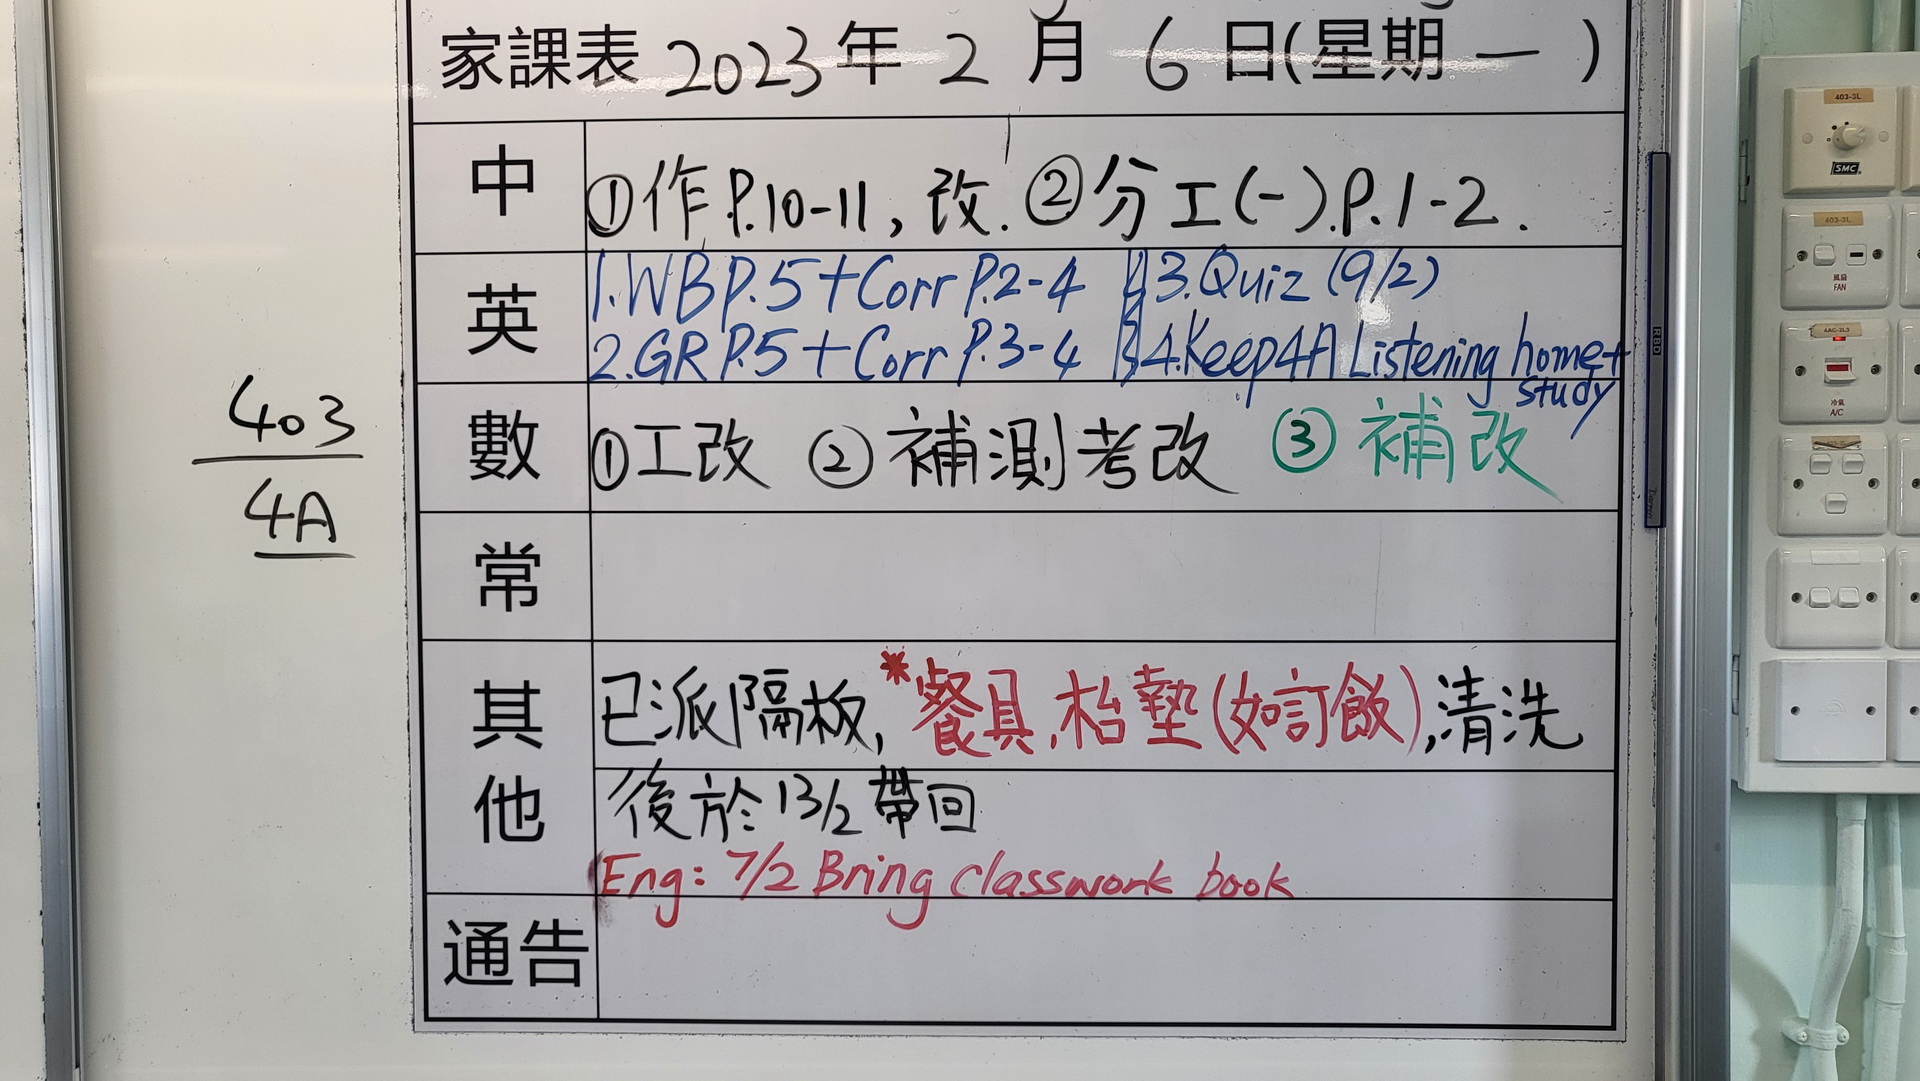 家課表 2023年 2 月 6 日(星期 一 )
中
①作P.10-11, 改. ②分工(一).P.1-2.
英
1.WB P.5 + Corr P.2-4
3.Quiz (9/2)
2.GR P.5 + Corr P.3-4
4.Keep 4A Listening home +
study
數
①工改 ②補測考改 ③補改
常
其他
已派隔板, *餐具,枱墊(如訂飯),清洗
後於13/2帶回
Eng: 7/2 Bring classwork book
通告
403
4A
403-3L
SMC
403-3L
風扇
FAN
4AC-2L3
冷氣
A/C